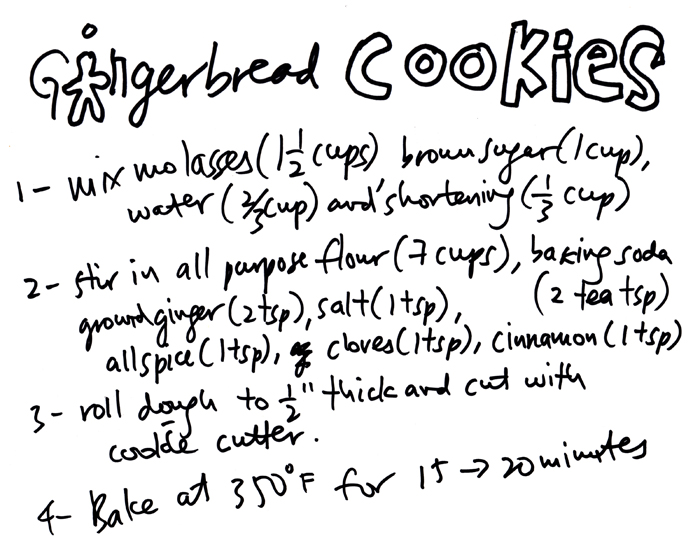 Gingerbread COOKiES
1 - mix molasses (1 1/2 cups) brown sugar (1 cup),
water (2/3 cup) and shortening (1/3 cup)
2 - stir in all purpose flour (7 cups), baking soda
(2 tea tsp)
ground ginger (2 tsp), salt (1 tsp),
allspice (1 tsp), cloves (1 tsp), cinnamon (1 tsp)
3 - roll dough to 1/2" thick and cut with
cookie cutter.
4 - Bake at 350°F for 15 → 20 minutes